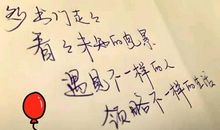 多出门走走
看看未知的世界
遇见不一样的人
领略不一样的生活